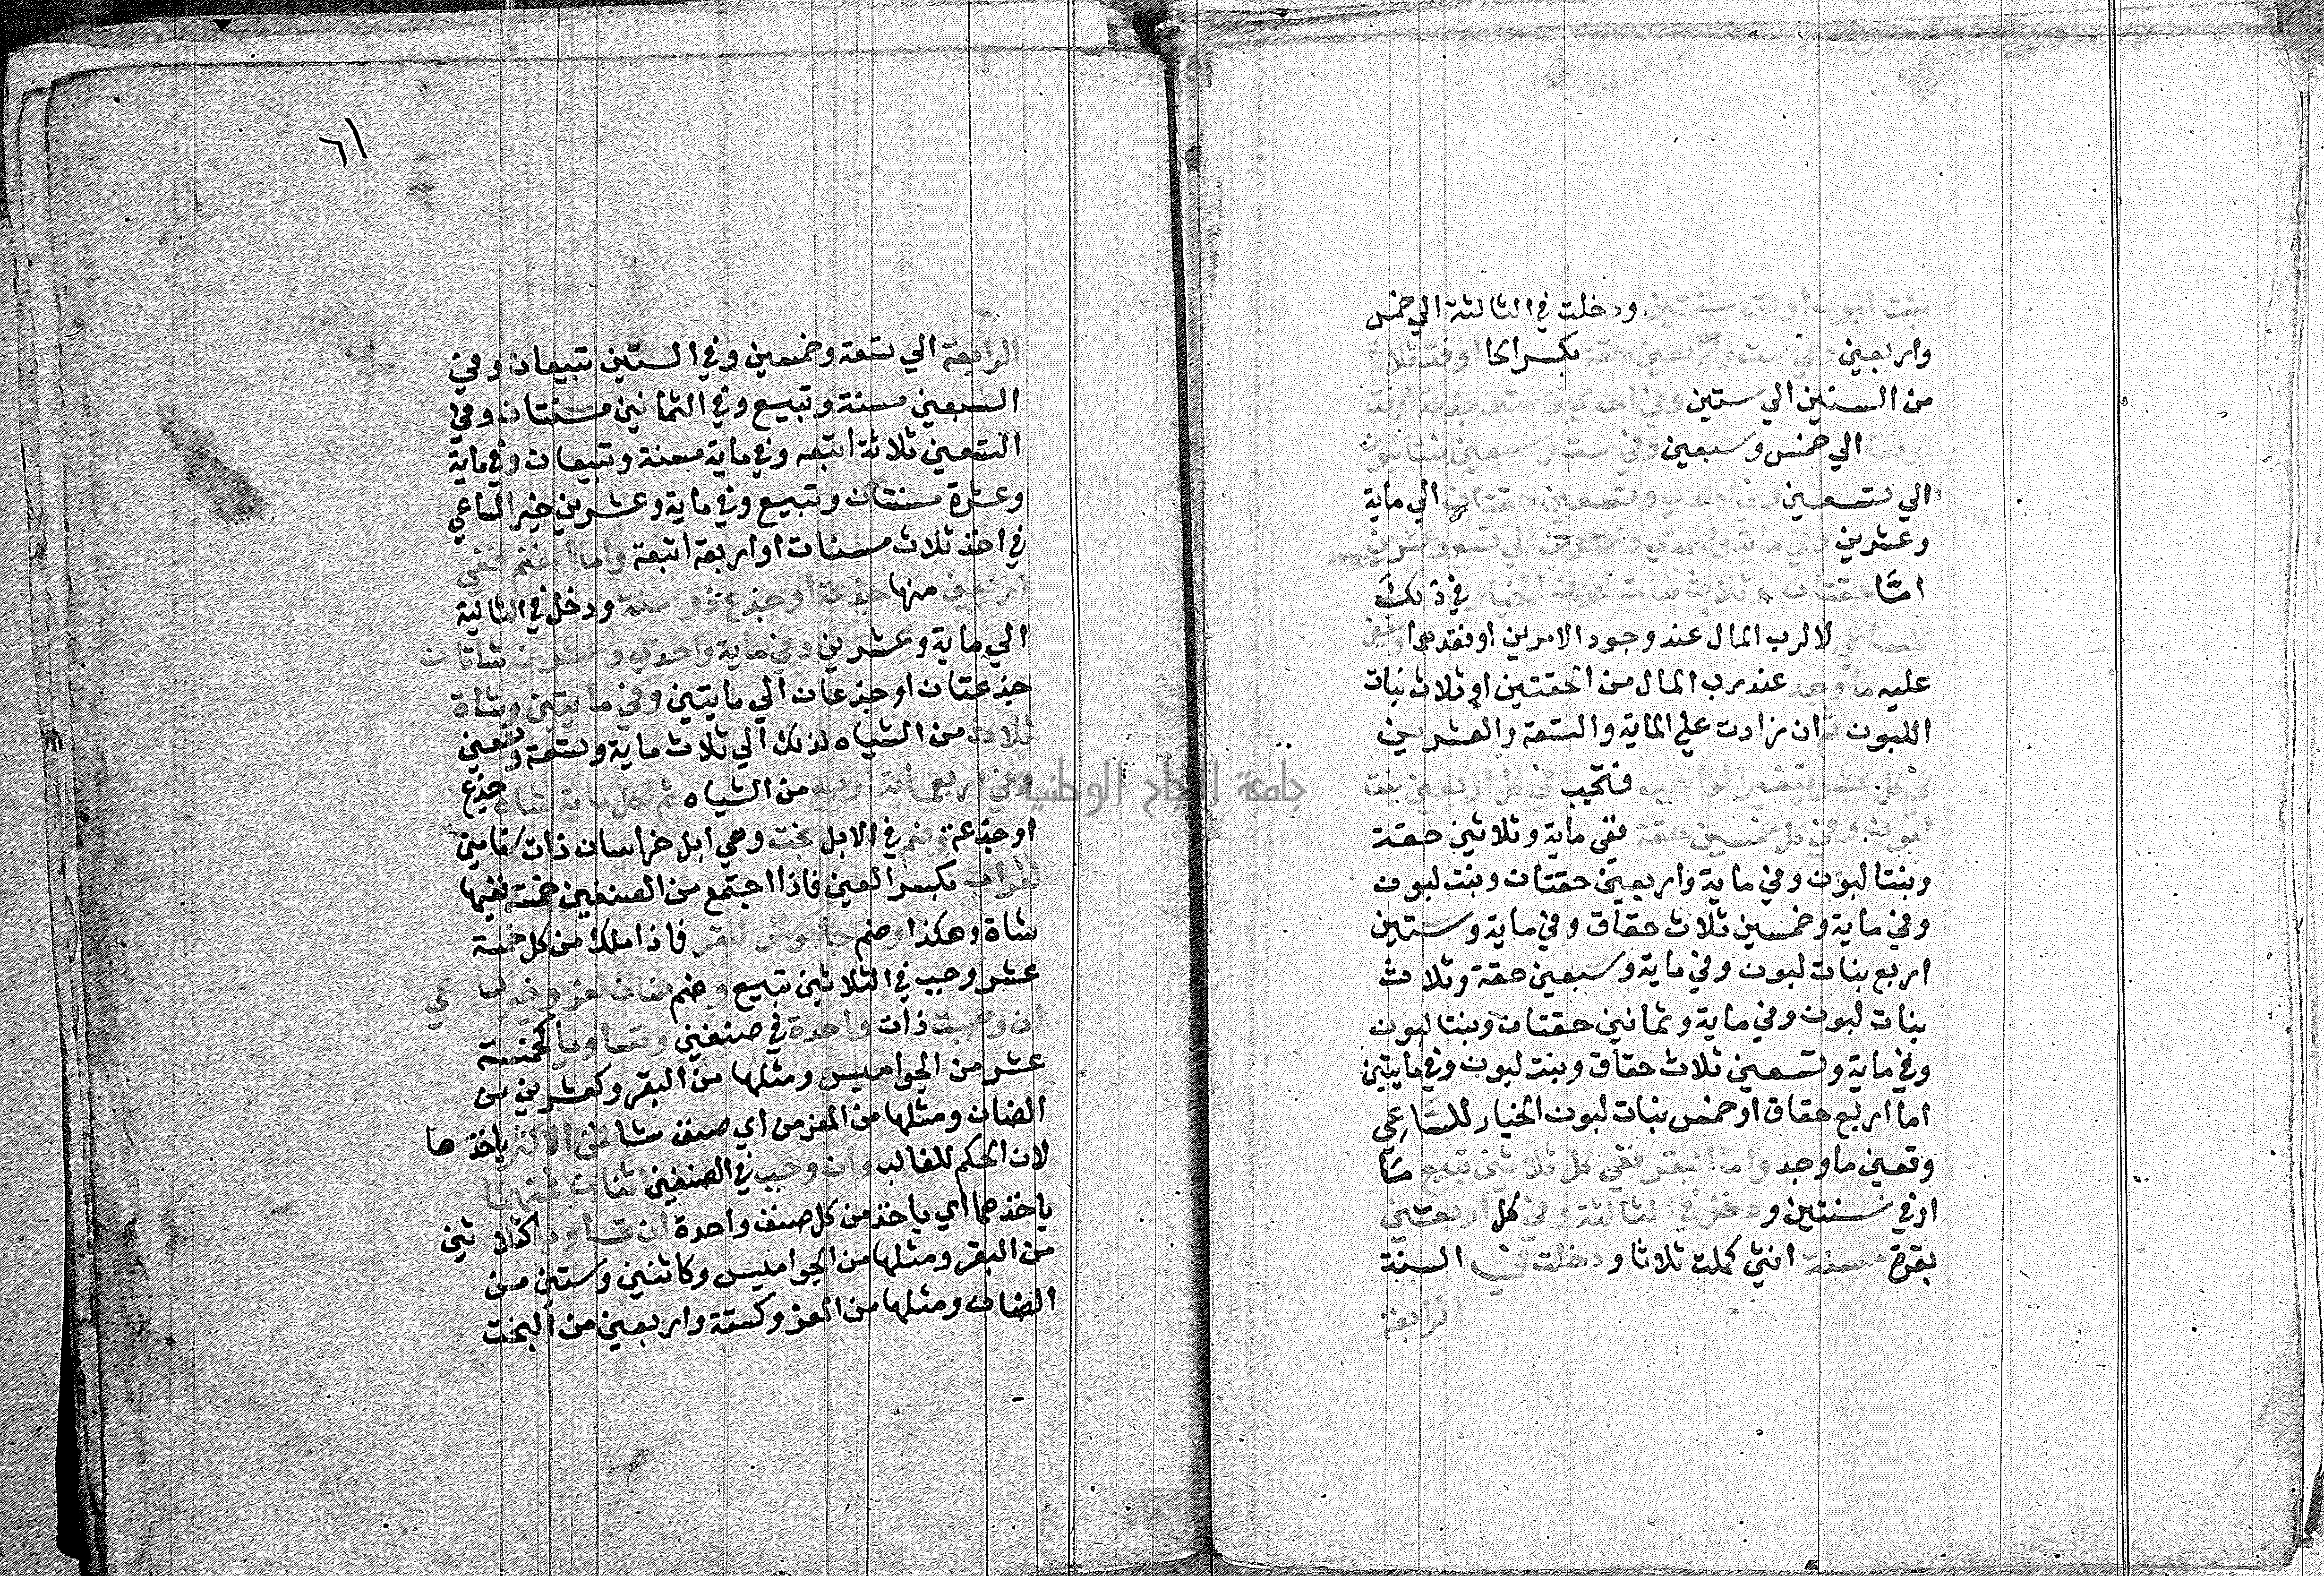 بنت لبون اوفت سنتين ودخلت في الثالثة الي خمس
واربعين وفي ست واربعين حقة بكسر الحا اوفت ثلاثا
من السنين الي ستين وفي احدي وستين جذعة اوفت
اربعا الي خمس وسبعين وفي ست وسبعين بنتا لبون
الي تسعين وفي احدي وتسعين حقتان الي ماية
وعشرين وفي ماية واحدي وعشرين الي تسع وعشرين
امّا حقتان او ثلاث بنات لبون الخيار في ذلك
للساعي لا لرب المال عند وجود الامرين او فقدهما وتعين
عليه ما وجد عند رب المال من الحقتين او ثلاث بنات
اللبون ثم ان زادت علي الماية والتسعة والعشرين
في كل عشر يتغير الواجب فتجب في كل اربعين بنت
لبون وفي كل خمسين حقة ففي ماية وثلاثين حقة
وبنتا لبون وفي ماية واربعين حقتان وبنت لبون
وفي ماية وخمسين ثلاث حقاق وفي ماية وستين
اربع بنات لبون وفي ماية وسبعين حقة وثلاث
بنات لبون وفي ماية وثمانين حقتان وبنتا لبون
وفي ماية وتسعين ثلاث حقاق وبنت لبون وفي مايتين
اما اربع حقاق او خمس بنات لبون الخيار للسَّاعِي
وتعين ما وجد واما البقر ففي كل ثلاثين تبيع مَا
اوفي سنتين ودخل في الثالثة وفي كل اربعين
بقرة مسنة انثي كملت ثلاثا ودخلت في السنة
الرابعة
٦١
الرابعة الي تسعة وخمسين وفي الستين تبيعان وفي
السبعين مسنة وتبيع وفي الثمانين مسنتان وفي
التسعين ثلاثة اتبعه وفي ماية مسنة وتبيعان وفي ماية
وعشرة مسنتان وتبيع وفي ماية وعشرين خير الساعي
في اخذ ثلاث مسنات او اربعة اتبعة واما الغنم ففي
اربعين منها جذعة او جذع ذو سنة ودخل في الثانية
الي ماية وعشرين وفي ماية واحدي وعشرين شاتان
جذعتان او جذعان الي مايتين وفي مايتين وشاة
ثلاث من الشياه لذلك الي ثلاث ماية وتسعة وتسعين
وفي اربعماية اربع من الشياه ثم لكل ماية شاة جذع
او جذعة وضم في الابل بخت وهي ابل خراسان ذات سنامين
لعراب بكسر العين فاذا اجتمع من الصنفين خمسة ففيها
شاة وهكذا وضم جاموش لبقر فاذا ملك من كل خمسة
عشر وجب في الثلاثين تبيع وضم ضان لمعز وخير الساعي
ان وجبت ذات واحدة في صنفين وتساويا كخمسة
عشر من الجواميس ومثلها من البقر وكعشرين من
الضان ومثلها من المعز من اي صنف شا فمن الاكثر ياخذها
لان الحكم للغالب وان وجب في الصنفين اثنان فمنهما
ياخذهما اي ياخذ من كل صنف واحدة ان تساويا كثلاثين
من البقر ومثلها من الجواميس وكاثنين وستين من
الضان ومثلها من المعز وكستة واربعين من البخت
جامعة النجاح الوطنية